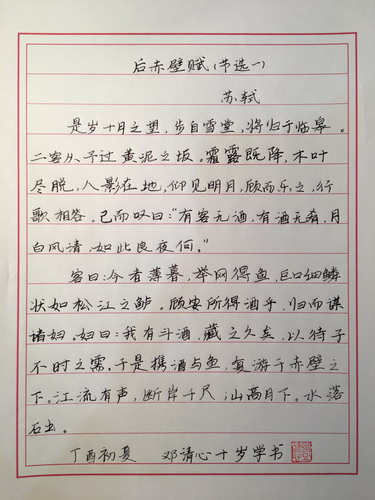 后赤壁赋(节选一)
苏轼
是岁十月之望，步自雪堂，将归于临皋。
二客从予过黄泥之坂。霜露既降，木叶
尽脱，人影在地，仰见明月，顾而乐之，行
歌相答。已而叹曰："有客无酒，有酒无肴，月
白风清，如此良夜何。"
客曰：今者薄暮，举网得鱼，巨口细鳞
状如松江之鲈。顾安所得酒乎，归而谋
诸妇。妇曰：我有斗酒，藏之久矣，以待子
不时之需。于是携酒与鱼，复游于赤壁之
下。江流有声，断岸千尺，山高月下。水落
石出。
丁酉初夏 邓清心十岁学书